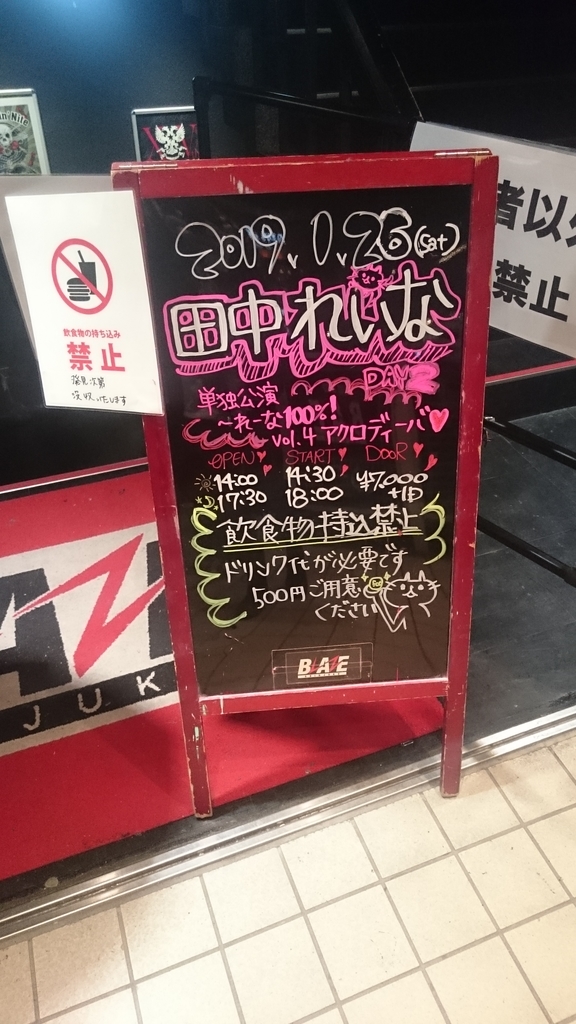 2019.1.26(sat)
田中れいな
DAY2
単独公演
~れーな100%!
vol.4 アクロディーバ♥
OPEN START DOOR
14:00 14:30 ¥7,000
17:30 18:00 +1D
飲食物持込禁止
ドリンク代が必要です
500円ご用意
ください
BLAZE
飲食物の持ち込み
禁止
発見次第
没収いたします
者以外
禁止
JUK